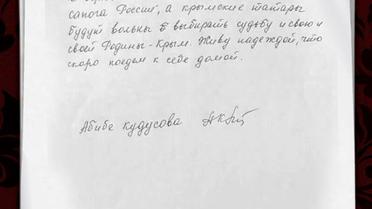 сапога России, а крымские татары
будут вольны выбирать судьбу и свою и
своей Родины-Крым. Живу надеждой, что
скоро поедем к себе домой.
Абибе Кудусова